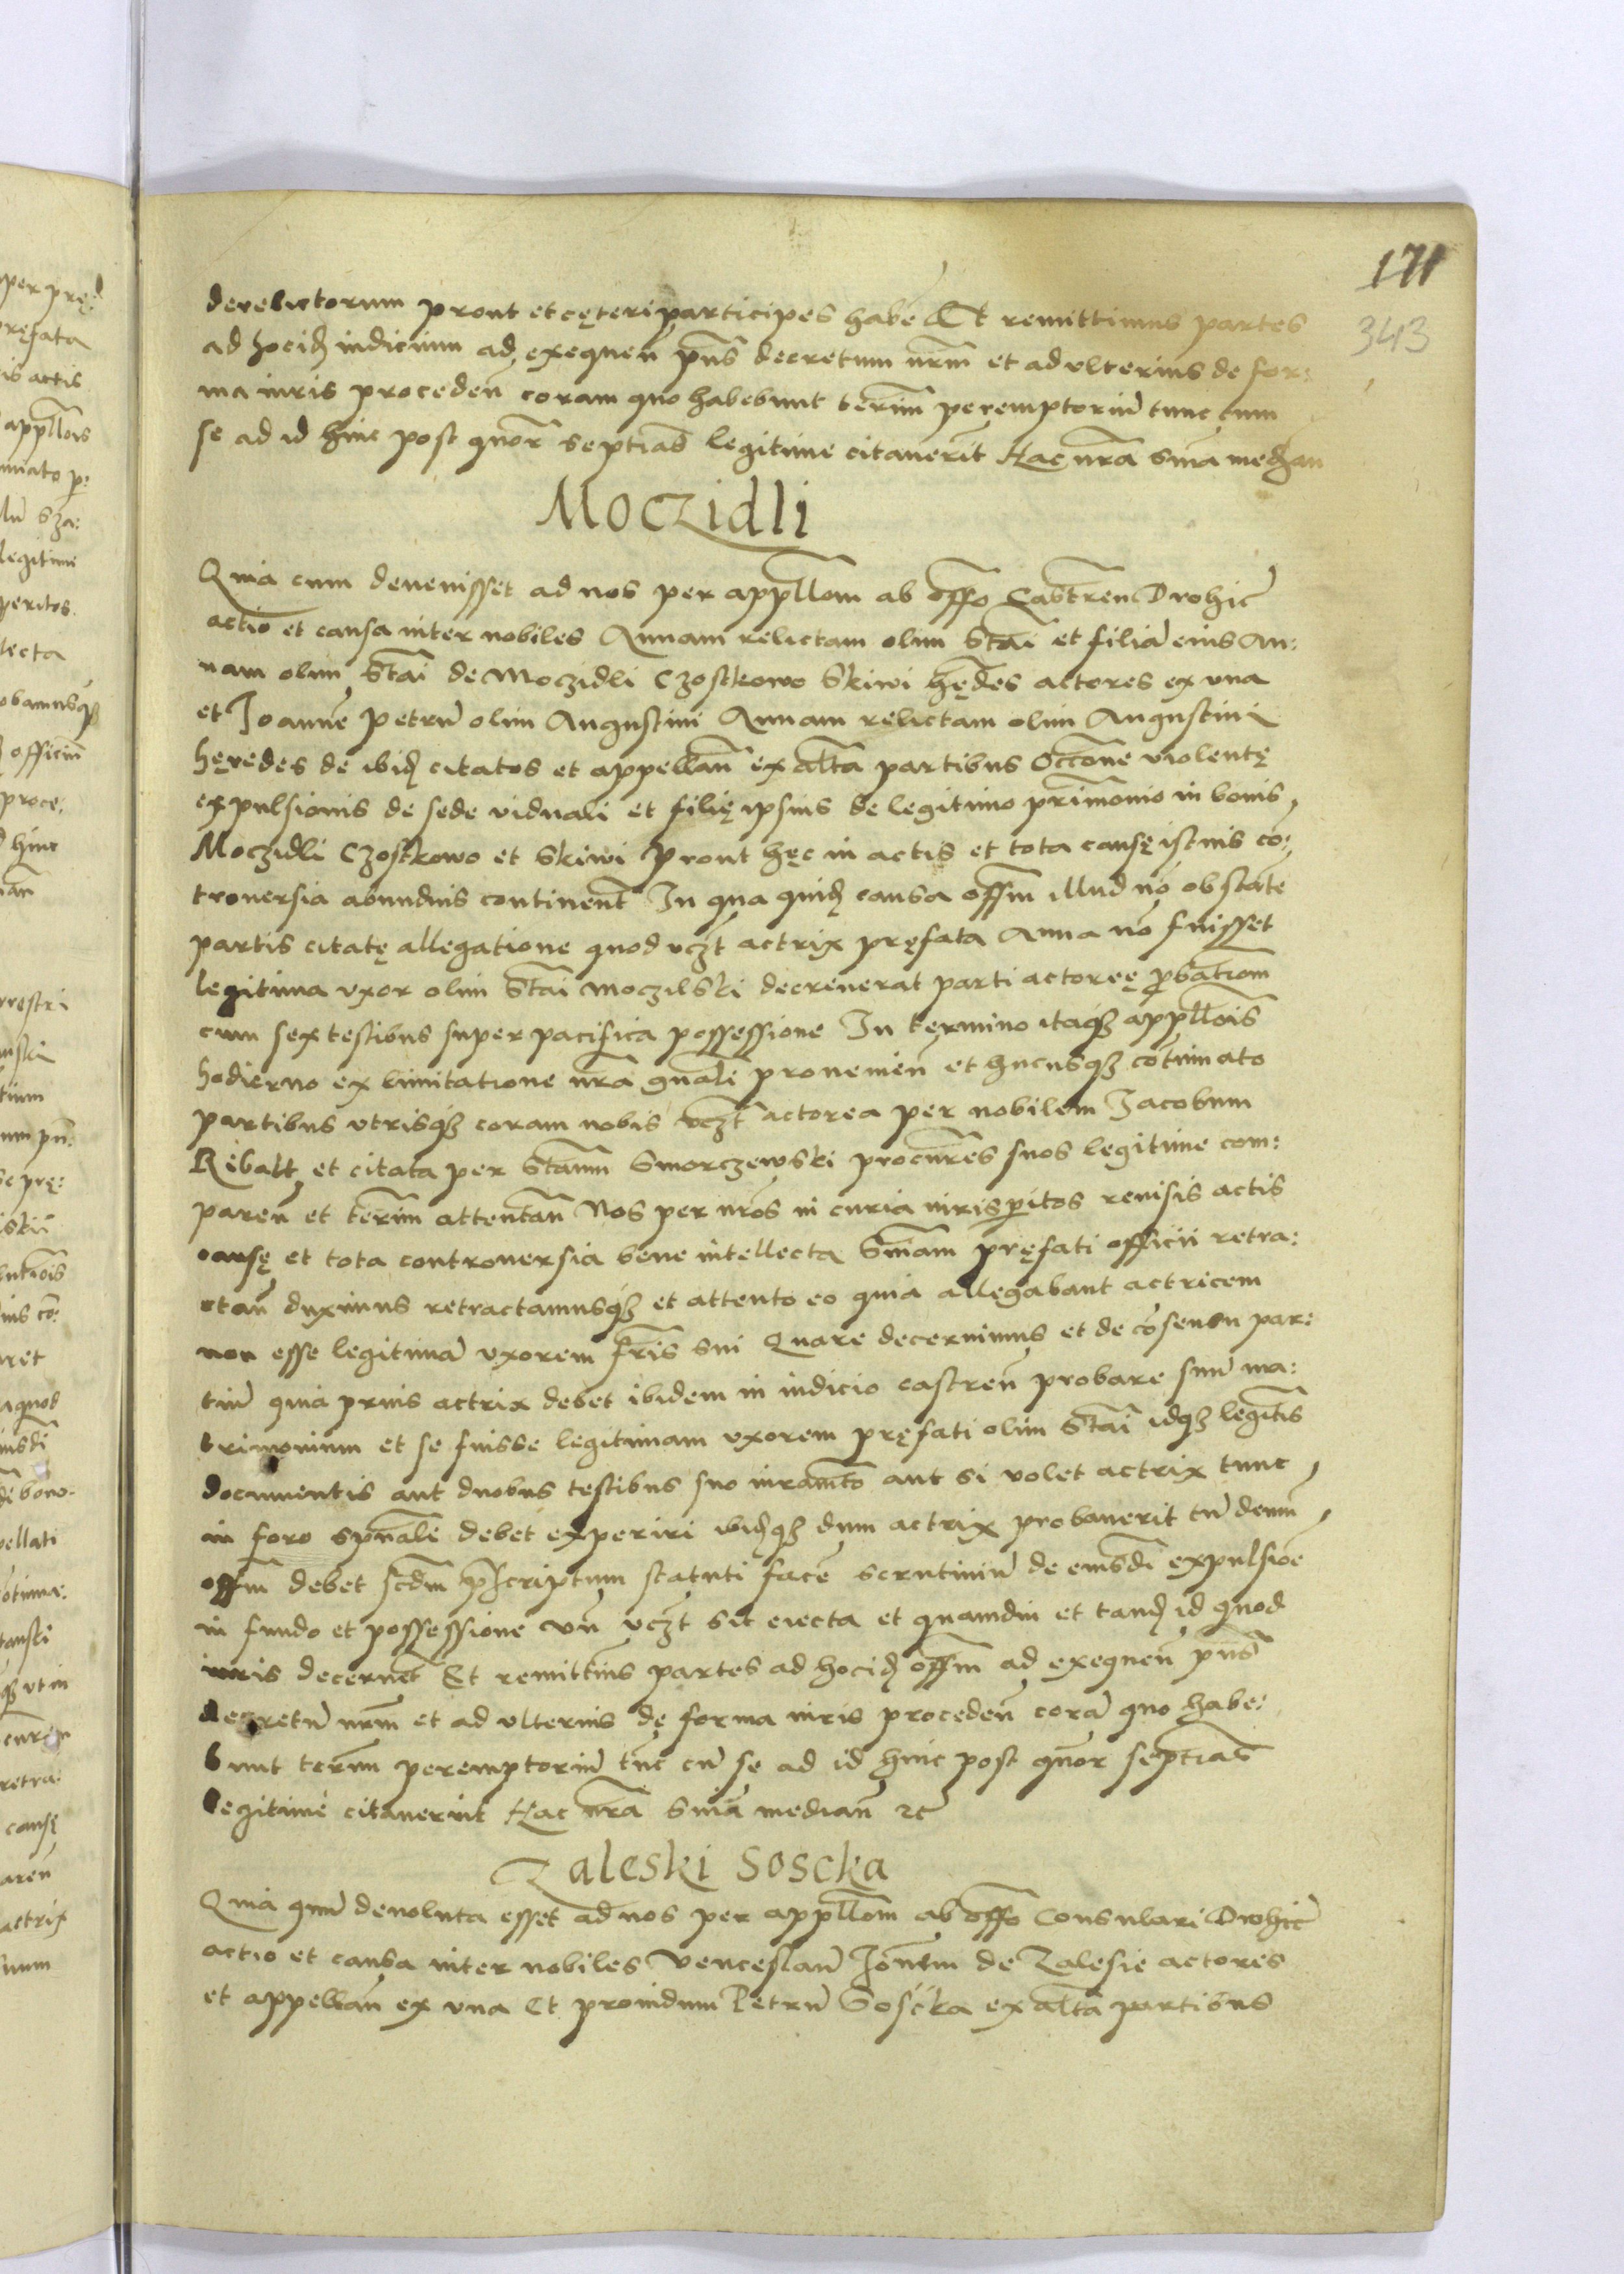 171
343
derelictorum prout et cęteri participes habeñ Et remittimus partes
ad hocidē iudicium ad exequeñ pñs decretum nrm̃ et ad ulterius de for:
ma iuris procedeñ coram quo habebunt termĩ peremptoriũ tunc cum
se ad id hinc post quor̃ septĩas legitime citauerit Hac nrã snĩa median
Moczidli
Quia cum deuenisset ad nos per appllom̃ ab offo Castreñ Drohic̃
actio et causa inter nobiles Annam relictam olim Stai et filiã eius An:
nam olim Stai de Moczidli Czostkowo Skiwi hędes actores ex una
et Joannẽ petrũ olim Augustini Annam relictam olim Augustini
hęredes de ibidē citatos et appellañ ex altã partibus Occone violentę
expulsionis de sede viduali et filię ipsius de legitimo prim̃onio in bonis
Moczidli Czostkowo et Skiwi Prout hęc in actis et tota causę istius cõ:
trouersia abundius continent̃ In qua quidē causa offm̃ illud nõ obstãte
partis citatę allegatione quod vczt actrix pręfata Anna nõ fuisset
legitima vxor olim Stai Moczilski decreuerat parti actoreę p̃bationm̃
cum sex testibus super pacifica possessione In termino itaqz appllois
hodierno ex limitatione nrã gnãli prouenieñ et hucusqz cõtinuato
partibus utrisqz coram nobis vczt actorea per nobilem Jacobum
Ribalt et citata per Stanm̃ Smorczewski procur̃es suos legitime com:
pareñ et termĩ attentañ Nos per nrõs in curia iurisp̃itos reuisis actis
causę et tota controuersia bene intellecta Snĩam pręfati officii retra:
ctañ duximus retractamusqz et attento eo quia allegabant actricem
non esse legitimã vxorem fris̃ sui Quare decernimus et de cõsensu par:
tiũ quia prius actrix debet ibidem in iudicio castreñ probare suũ ma:
trimonium et se fuisse legitimam vxorem pręfati olim Stai idqz legitis̃
documentis aut duobus testibus suo iuramt̃o aut si volet actrix tunc
in foro spũali debet experiri ibidēqz dum actrix probauerit tũ demũ
offm̃ debet scdm̃ p̃scriptum statuti facẽ scrutiniũ de eiusdĩ expulsiõe
in fundo et possessione vñ vczt sit eiecta et quamdiu et tandē id quod
iuris decernet Et remittim̃s partes ad hocidē offm̃ ad exequeñ pñs
decretũ nrm̃ et ad ulterius de forma iuris procedeñ corã quo habe:
bunt termĩ peremptoriũ tũc cũ se ad id hinc post quor̃ septĩas
legitime citauerint Hac nrã snĩa mediañ etc̃
Zaleski Soscka
Quia quũ deuoluta esset ad nos per appllom̃ ab offo Consulari Drohic̃
actio et causa inter nobiles Venceslaũ Jonẽm de Zalesie actores
et appellañ ex vna Et prouidum Petrũ Soscka ex altã partibus